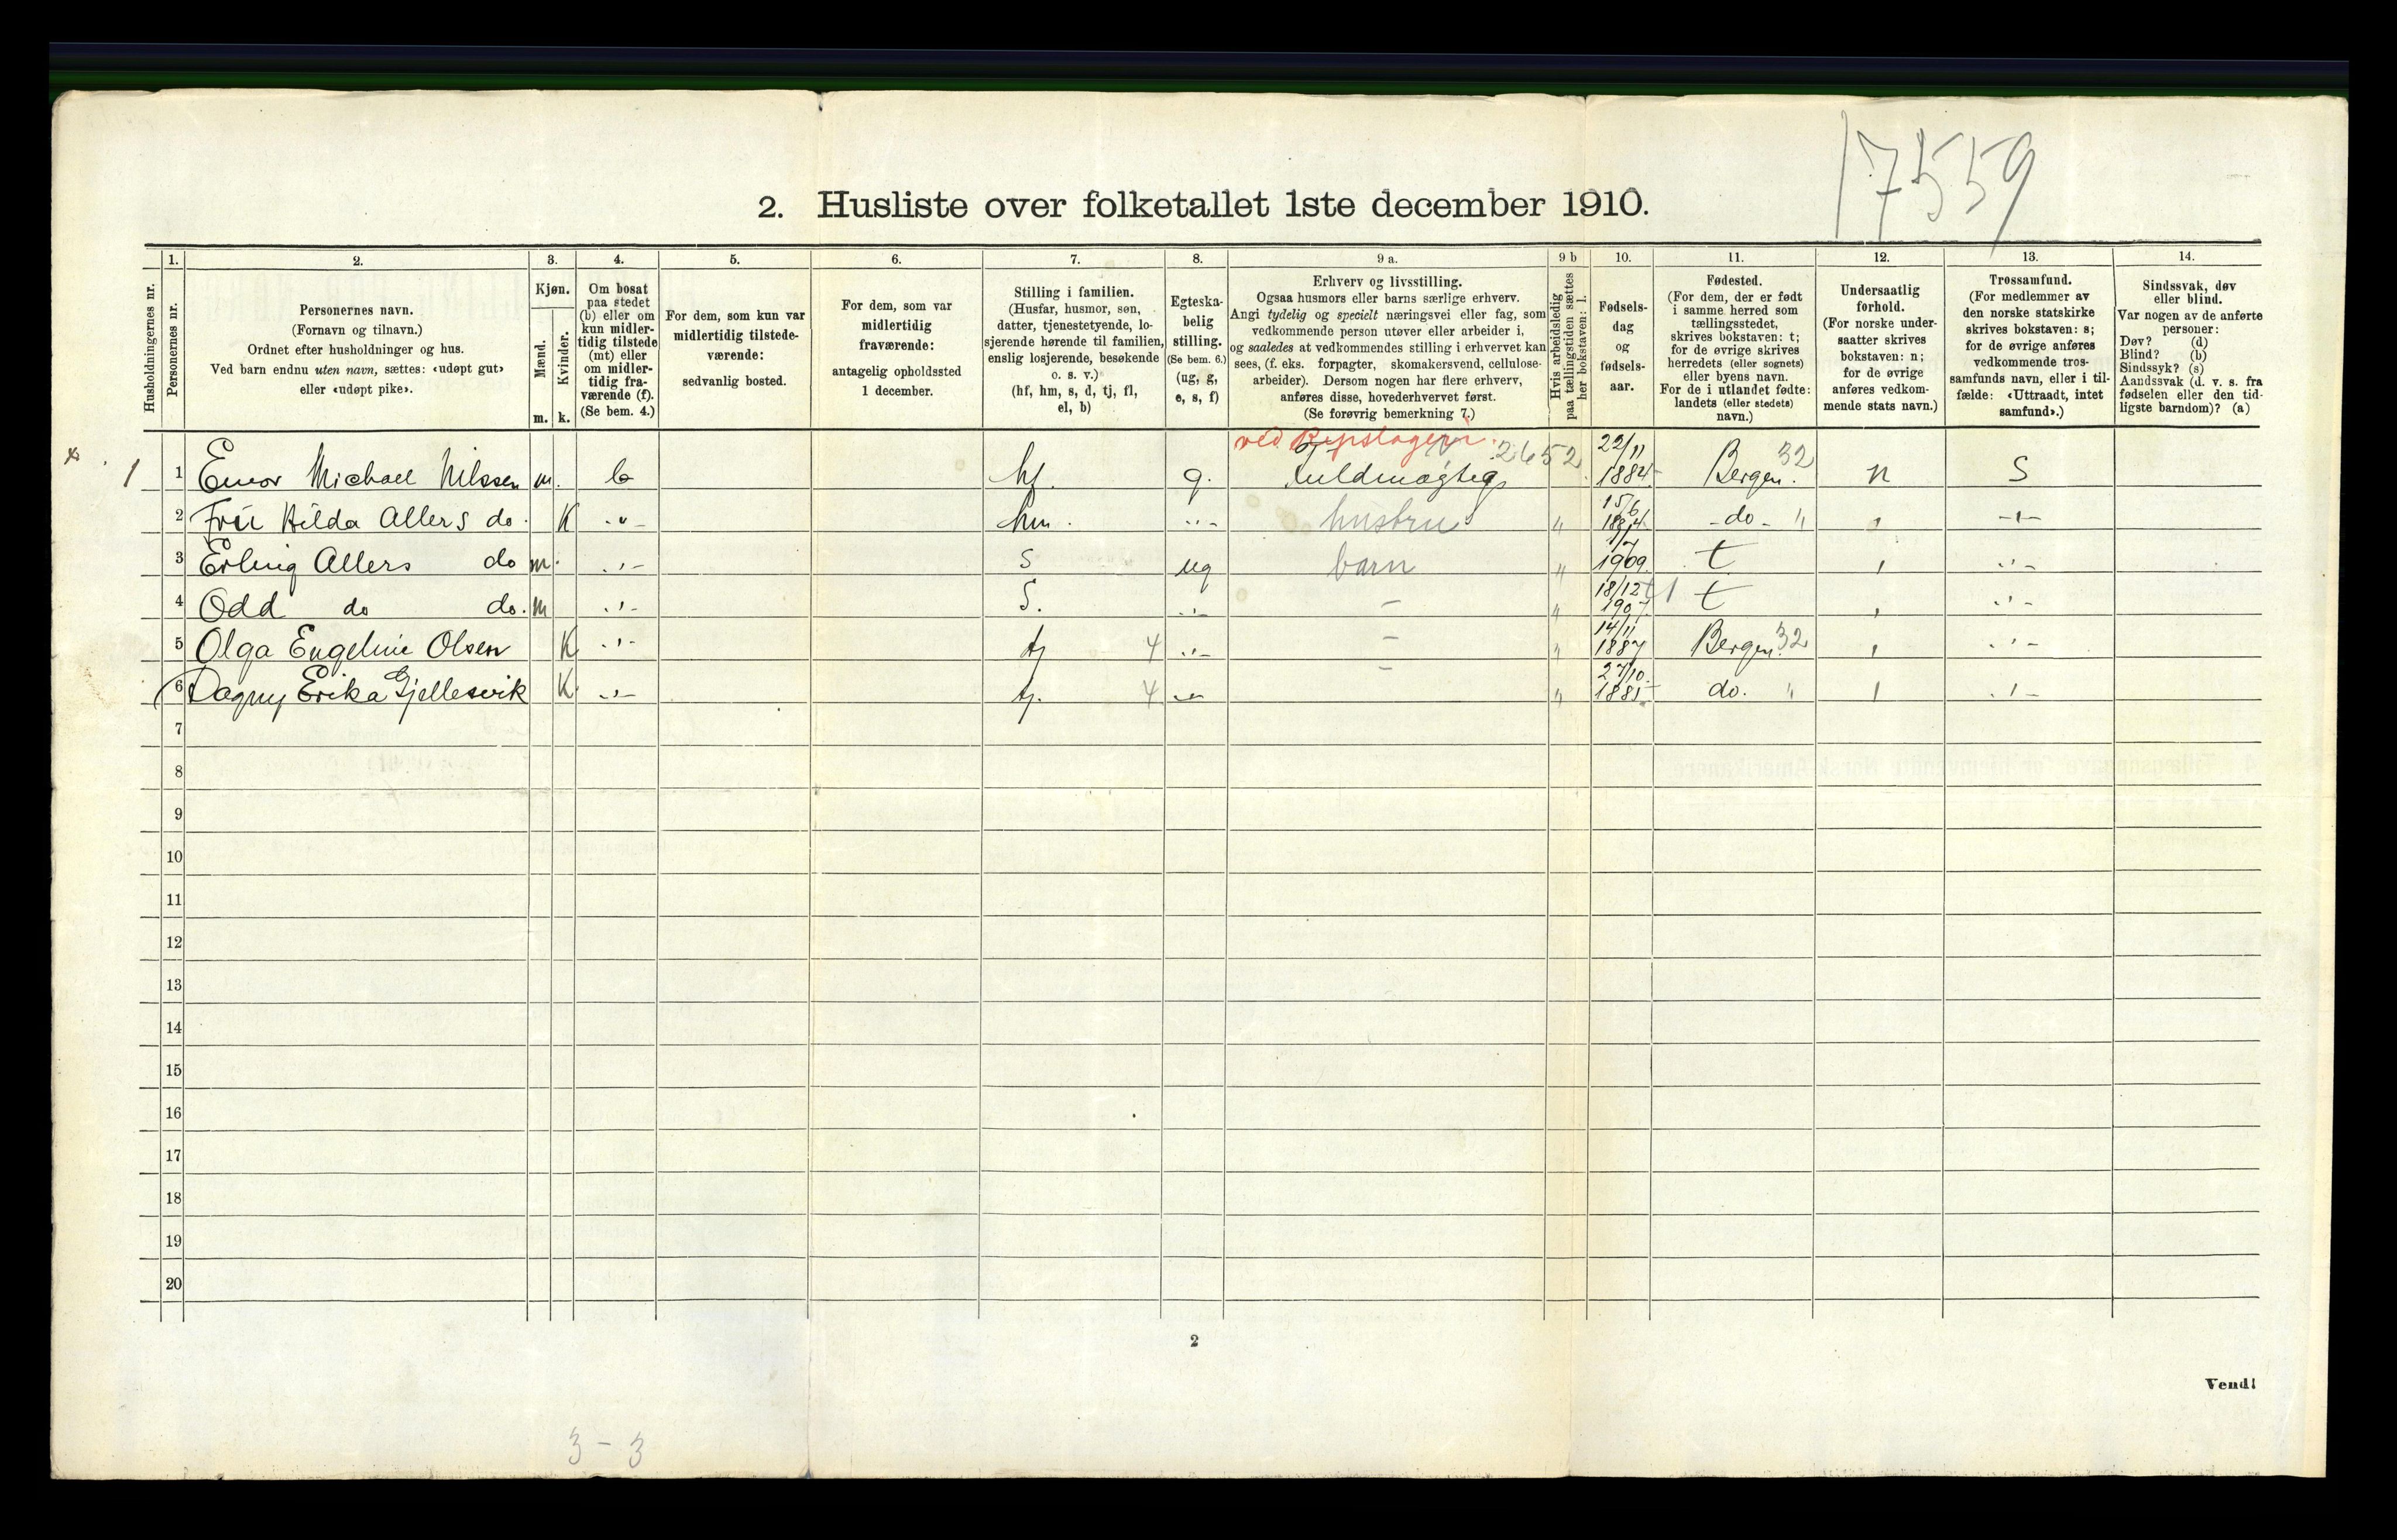 17559
2. Husliste over folketallet 1ste december 1910.
Husholdningernes nr.
1.
Personernes nr.
2.
Personernes navn.
(Fornavn og tilnavn.)
Ordnet efter husholdninger og hus.
Ved barn endnu uten navn, sættes: «udøpt gut»
eller «udøpt pike».
3.
Kjøn.
Mænd.
m.
Kvinder.
k.
4.
Om bosat
paa stedet
(b) eller om
kun midler-
tidig tilstede
(mt) eller
om midler-
tidig fra-
værende (f).
(Se bem. 4.)
5.
For dem, som kun var
midlertidig tilstede-
værende:
sedvanlig bosted.
6.
For dem, som var
midlertidig
fraværende:
antagelig opholdssted
1 december.
7.
Stilling i familien.
(Husfar, husmor, søn,
datter, tjenestetyende, lo-
sjerende hørende til familien,
enslig losjerende, besøkende
o. s. v.)
(hf, hm, s, d, tj, fl,
el, b)
8.
Egteska-
belig
stilling.
(Se bem. 6.)
(ug, g,
e, s, f)
9 a.
Erhverv og livsstilling.
Ogsaa husmors eller barns særlige erhverv.
Angi tydelig og specielt næringsvei eller fag, som
vedkommende person utøver eller arbeider i,
og saaledes at vedkommendes stilling i erhvervet kan
sees, (f. eks. forpagter, skomakersvend, cellulose-
arbeider). Dersom nogen har flere erhverv,
anføres disse, hovederhvervet først.
(Se forøvrig bemerkning 7.)
9 b
Hvis arbeidsledig
paa tællingstiden sættes
her bokstaven: l.
10.
Fødsels-
dag
og
fødsels-
aar.
11.
Fødested.
(For dem, der er født
i samme herred som
tællingsstedet,
skrives bokstaven: t;
for de øvrige skrives
herredets (eller sognets)
eller byens navn.
For de i utlandet fødte:
landets (eller stedets)
navn.)
12.
Undersaatlig
forhold.
(For norske under-
saatter skrives
bokstaven: n;
for de øvrige
anføres vedkom-
mende stats navn.)
13.
Trossamfund.
(For medlemmer av
den norske statskirke
skrives bokstaven: s;
for de øvrige anføres
vedkommende tros-
samfunds navn, eller i til-
fælde: «Uttraadt, intet
samfund».)
14.
Sindssvak, døv
eller blind.
Var nogen av de anførte
personer:
Døv? (d)
Blind? (b)
Sindssyk? (s)
Aandssvak (d. v. s. fra
fødselen eller den tid-
ligste barndom)? (a)
ved Repslageri 2652
1 1 Michael Nilssen m. b hf. g. Fuldmægtig 22/11 1884 Bergen. 32 n S
2 Hilda Allers do. K -"- hm. -"- hustru " 15/6 - do - " -"-
3 Erling Allers do m. -"- s ug barn " 1909 t -"-
4 Odd do do. m -"- S. -"- - " 18/12 1907 t -"-
5 Olga Engeline Olsen K -"- tj 4 -"- - " 14/11 1887 Bergen. 32 -"-
6 Dagny Erika Gjellesvik K -"- tj. 4 -"- - " 27/10 1885 do. " -"-
7
8
9
10
11
12
13
14
15
16
17
18
19
20
2
Vend!
3 - 3